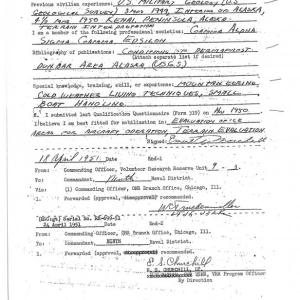 Previous civilian experience: U.S. MILITARY GEOLOGY (U.S.
GEOLOGICAL SURVEY) SINCE 1949, INTERIOR ALASKA,
1950 KENAI PENINSULA, ALASKA-
TERRAIN INTERPRETATION
GAMMA ALPHA
SIGMA GAMMA EPSILON
Bibliography of publications: CONDITIONS PERMAFROST
DUNBAR AREA ALASKA (USGS)
(Attach separate list if desired)
Special knowledge, training, skill, or experience: MOUNTAINEERING,
COLD WEATHER LIVING TECHNIQUES, SMALL
BOAT HANDLING
I submitted last Qualifications Questionnaire (Form 319) on May 1950
I believe I am best fitted for mobilization in EVALUATION OF ICE
AREAS FOR AIRCRAFT OPERATION, TERRAIN EVALUATION
18 April 1951 Date End-1
From: Commanding Officer, Volunteer Research Reserve Unit 9 -
To: Commandant, Ninth Naval District.
Via: (1) Commanding Officer, ONR Branch Office, Chicago, Ill.
1. Forwarded (approval, recommended)
Serial No.
24 April 1951 Date End-2
From: Commanding Officer, ONR Branch Office, Chicago, Ill.
To: Commandant, NINTH Naval District.
1. Forwarded (approval, recommended)
E. S. Churchill
E. S. CHURCHILL, VRR Program Officer
By Direction